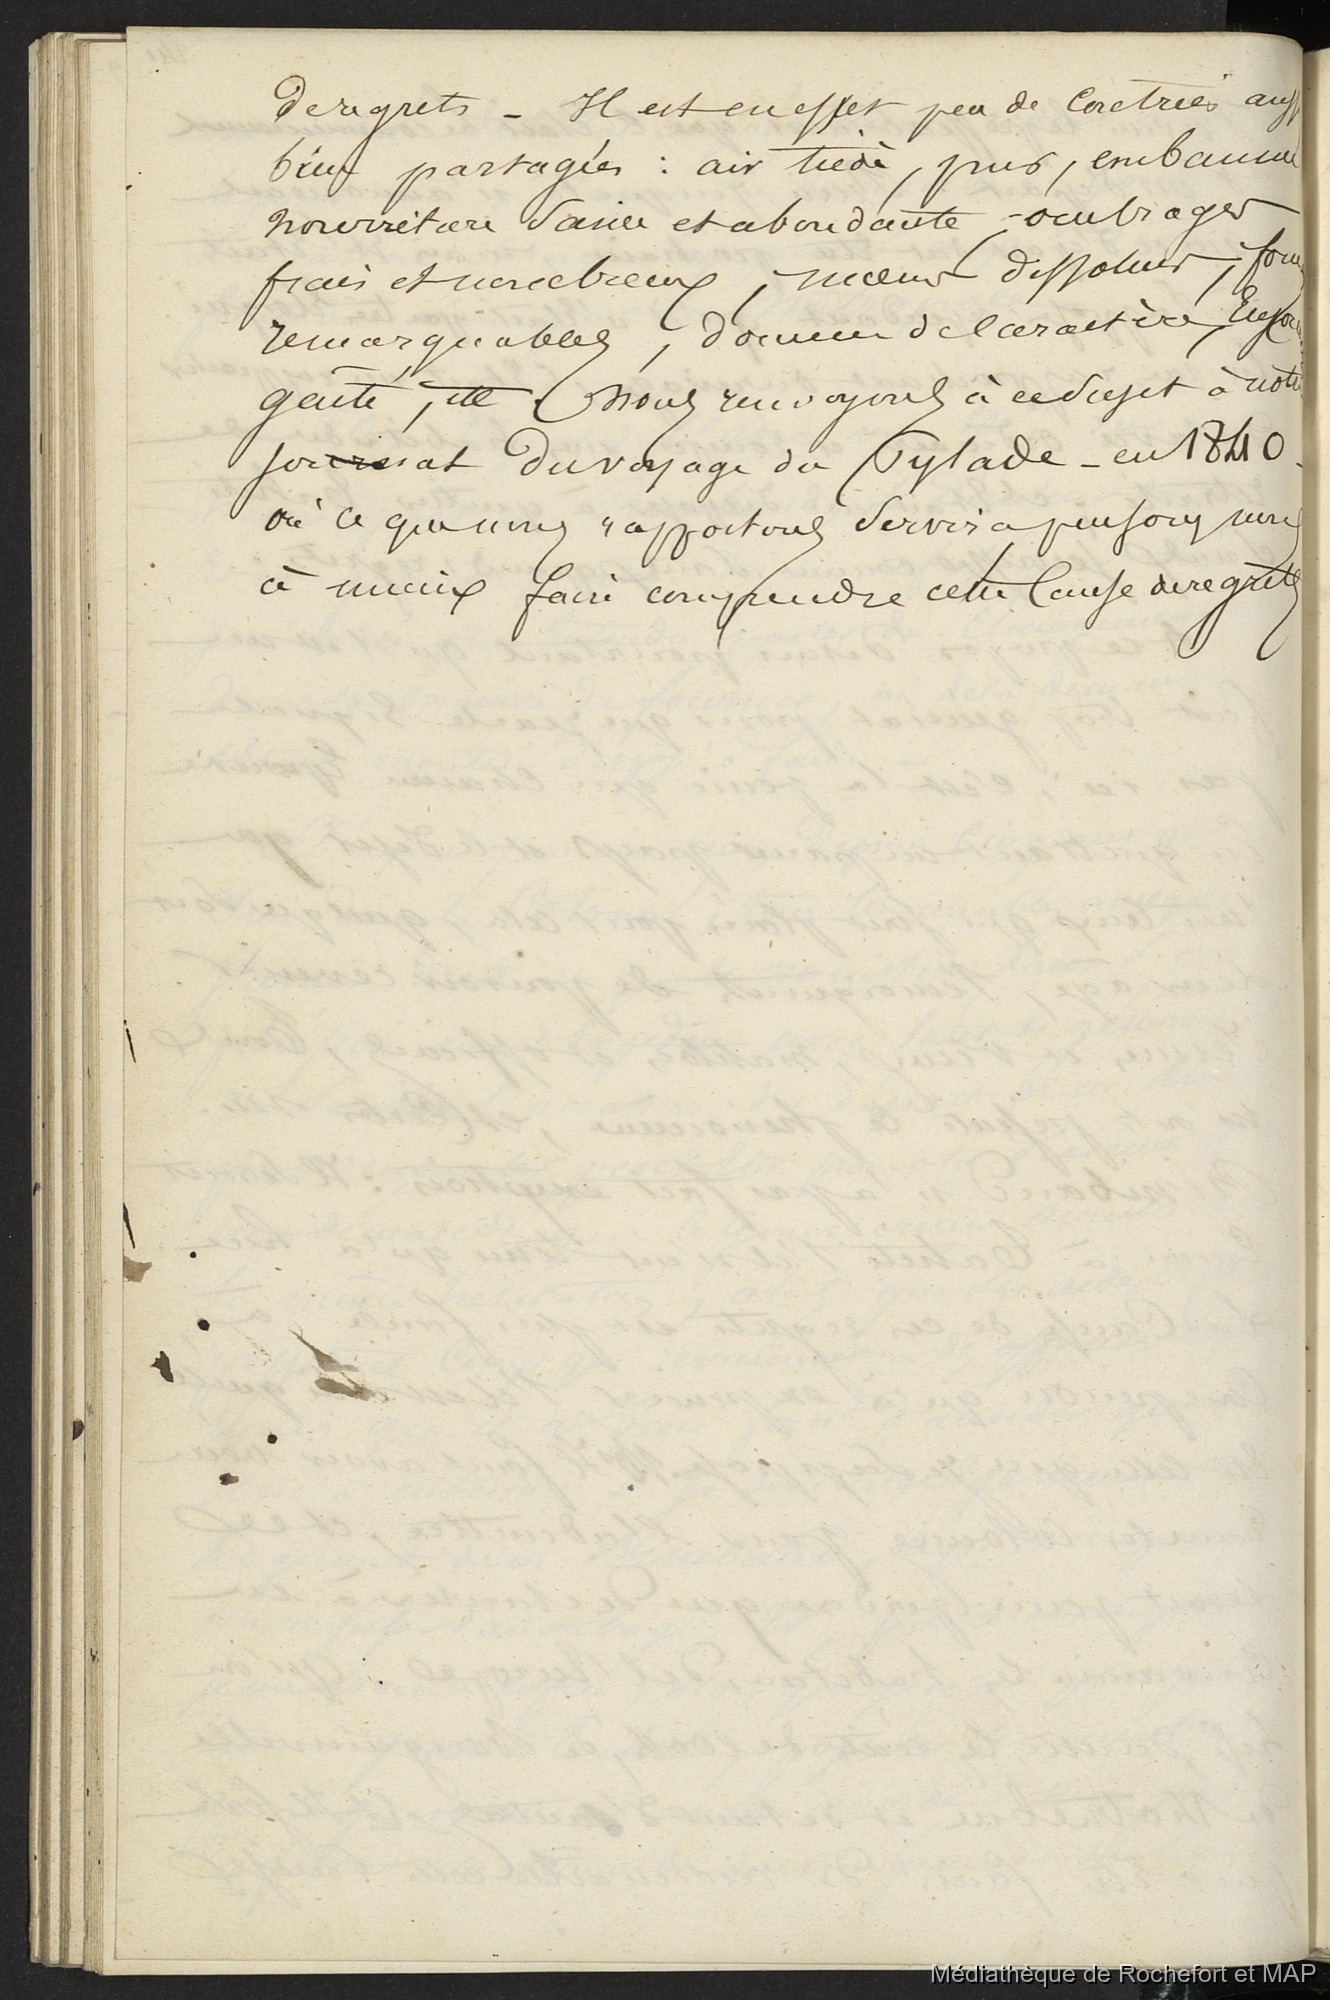 de regrets - Il est en effet peu de contrées auss
bien partagées : air tiède, pur, embaumé
nourriture saine et abondante, ombrages
frais et nombreux, mœurs dissolues, 
remarquables, douceur de caractère,
gaité, etc. Nous renvoyons à ce sujet à notre
journal du voyage du Pylade - en 1840 -
où ce que nous rapportons servira pensons nous
à mieux faire comprendre cette cause de regrets
Médiathèque de Rochefort et MAP